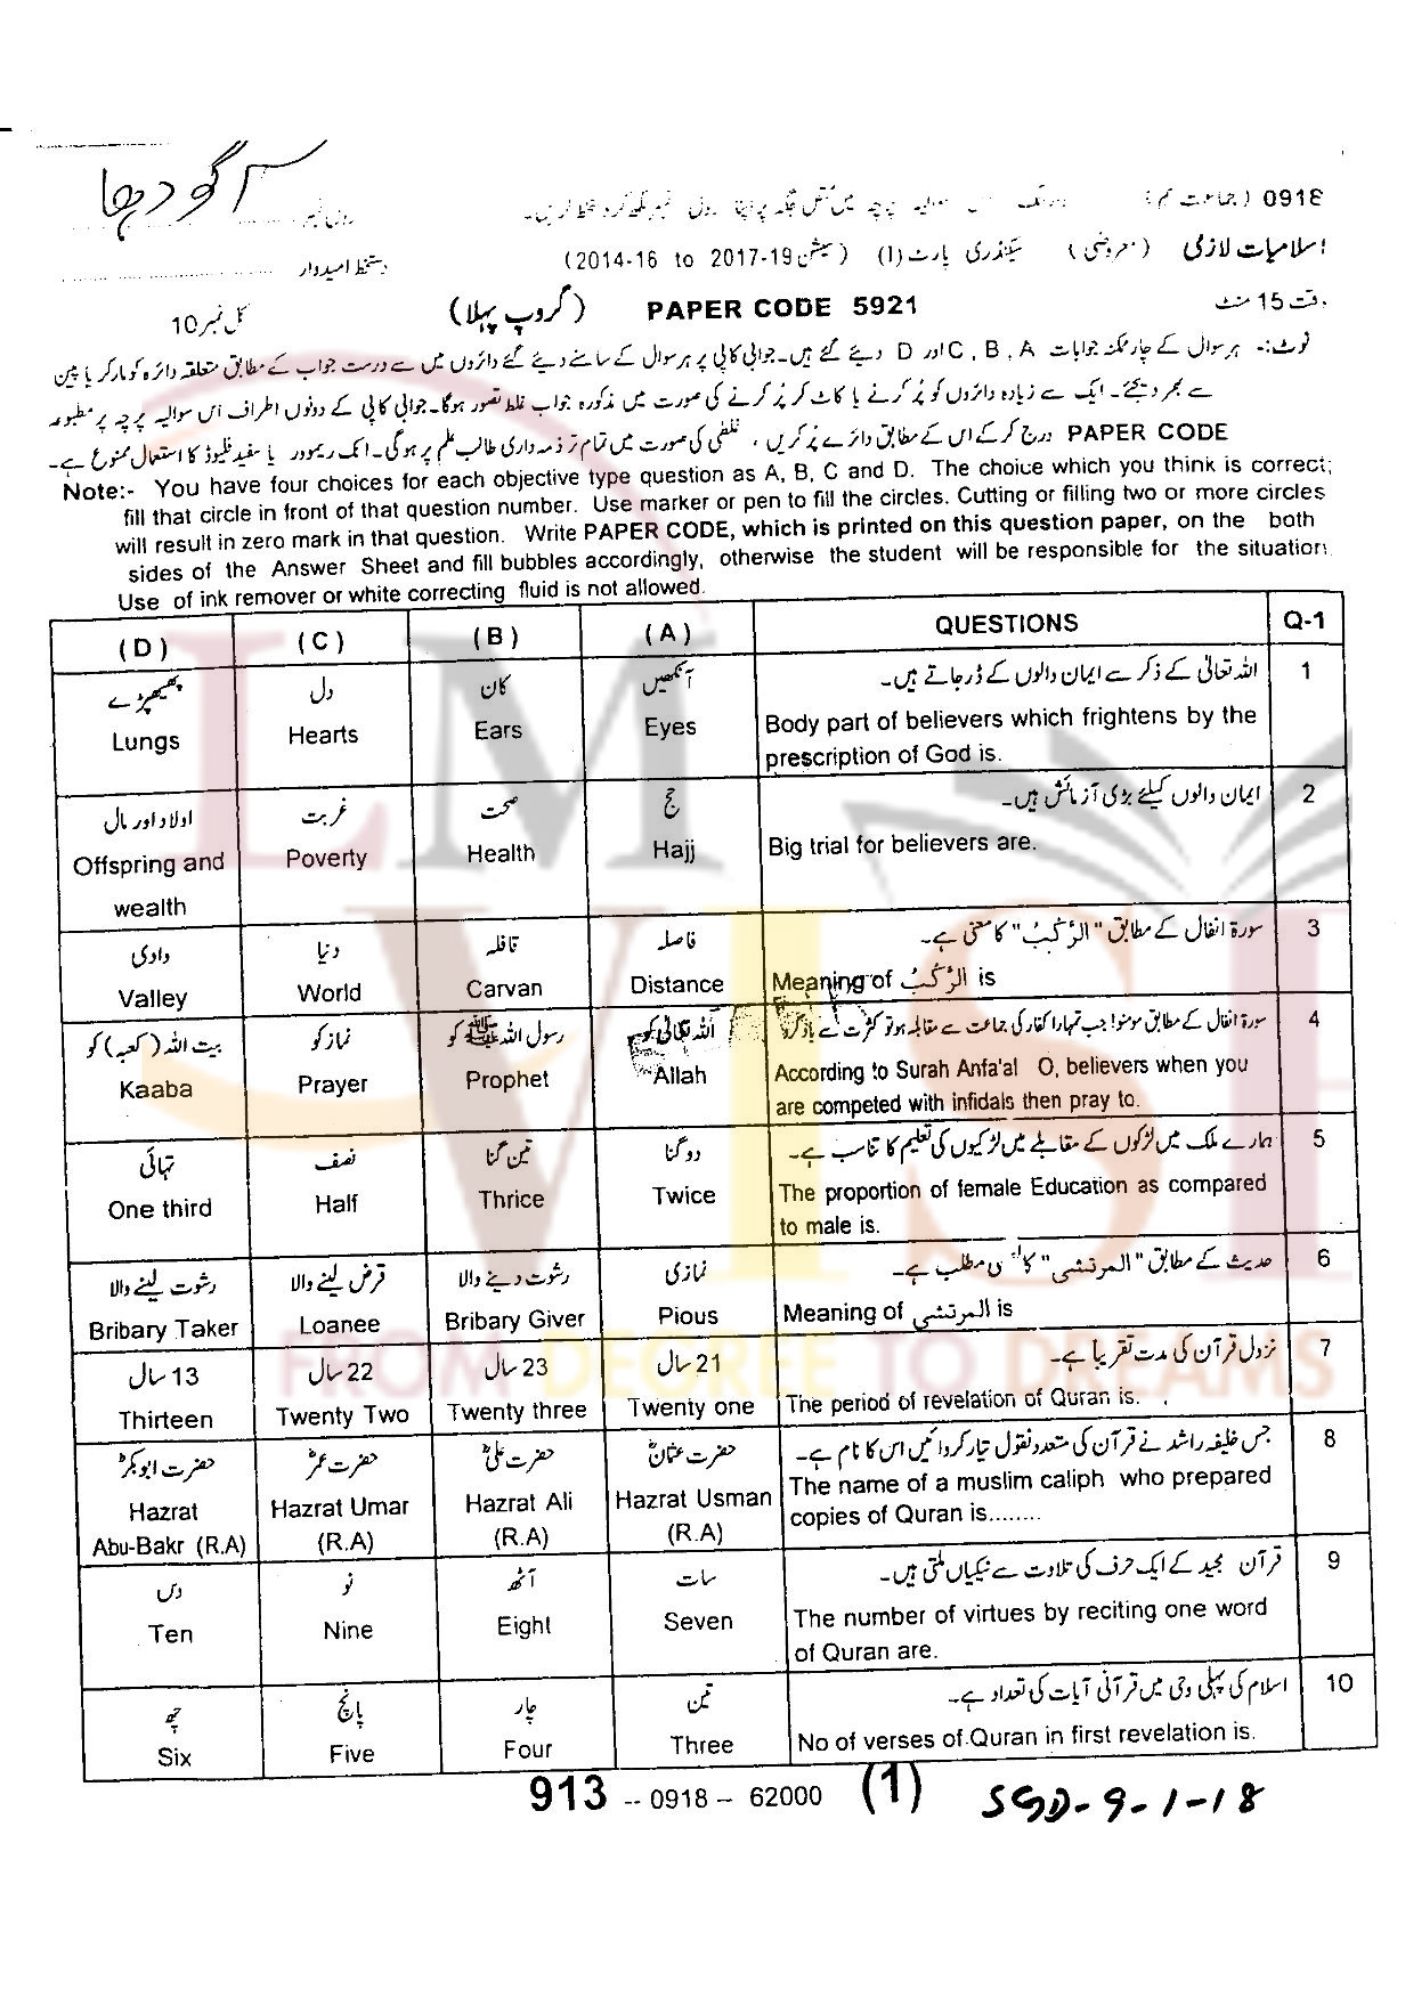 سرگودھا
0918 (جماعت نہم)
رولنمبر
اسلامیات لازمی (معروضی) سیکنڈری پارٹ (I) (سیشن 2014-16 to 2017-19)
دستخط امیدوار
وقت 15 منٹ PAPER CODE 5921 (گروپ پہلا) کل نمبر 10
نوٹ:- ہر سوال کے چار ممکنہ جوابات A , B , C اور D دیئے گئے ہیں۔ جوابی کاپی پر ہر سوال کے سامنے دیئے گئے دائروں میں سے درست جواب کے مطابق متعلقہ دائرہ کو مارکر یا پین
سے بھر دیجئے۔ ایک سے زیادہ دائروں کو پُر کرنے یا کاٹ کر پُر کرنے کی صورت میں مذکورہ جواب غلط تصور ہوگا۔ جوابی کاپی کے دونوں اطراف اس سوالیہ پرچہ پر مطبوعہ
PAPER CODE درج کر کے اس کے مطابق دائرے پُر کریں ، غلطی کی صورت میں تمام تر ذمہ داری طالب علم پر ہوگی۔ انک ریموور یا سفید فلیوڈ کا استعمال ممنوع ہے۔
Note:- You have four choices for each objective type question as A, B, C and D. The choice which you think is correct;
fill that circle in front of that question number. Use marker or pen to fill the circles. Cutting or filling two or more circles
will result in zero mark in that question. Write PAPER CODE, which is printed on this question paper, on the both
sides of the Answer Sheet and fill bubbles accordingly, otherwise the student will be responsible for the situation
Use of ink remover or white correcting fluid is not allowed.
(D) (C) (B) (A) QUESTIONS Q-1
پھیپھڑے دل کان آنکھیں اللہ تعالیٰ کے ذکر سے ایمان والوں کے ڈر جاتے ہیں۔ 1
Lungs Hearts Ears Eyes Body part of believers which frightens by the
prescription of God is.
اولاد اور مال غربت صحت حج ایمان والوں کیلئے بڑی آزمائش ہیں۔ 2
Offspring and Poverty Health Hajj Big trial for believers are.
wealth
وادی دنیا قافلہ فاصلہ سورۃ انفال کے مطابق "الرَّكْبُ" کا معنی ہے۔ 3
Valley World Carvan Distance Meaning of الرَّكْبُ is
بیت اللہ (کعبہ) کو نماز کو رسول اللہ ﷺ کو اللہ تعالیٰ کو سورۃ انفال کے مطابق مومنو! جب تمہارا کفار کی جماعت سے مقابلہ ہو تو کثرت سے یاد کرو 4
Kaaba Prayer Prophet Allah According to Surah Anfa'al O, believers when you
are competed with infidals then pray to.
تہائی نصف تین گنا دو گنا ہمارے ملک میں لڑکوں کے مقابلے میں لڑکیوں کی تعلیم کا تناسب ہے۔ 5
One third Half Thrice Twice The proportion of female Education as compared
to male is.
رشوت لینے والا قرض لینے والا رشوت دینے والا نمازی حدیث کے مطابق "المرتشی" کا مطلب ہے۔ 6
Bribary Taker Loanee Bribary Giver Pious Meaning of المرتشی is
13 سال 22 سال 23 سال 21 سال نزول قرآن کی مدت تقریباً ہے۔ 7
Thirteen Twenty Two Twenty three Twenty one The period of revelation of Quran is.
حضرت ابوبکرؓ حضرت عمرؓ حضرت علیؓ حضرت عثمانؓ جس خلیفہ راشد نے قرآن کی متعدد نقول تیار کروائیں اس کا نام ہے۔ 8
Hazrat Hazrat Umar Hazrat Ali Hazrat Usman The name of a muslim caliph who prepared
Abu-Bakr (R.A) (R.A) (R.A) (R.A) copies of Quran is........
دس نو آٹھ سات قرآن مجید کے ایک حرف کی تلاوت سے نیکیاں ملتی ہیں۔ 9
Ten Nine Eight Seven The number of virtues by reciting one word
of Quran are.
چھ پانچ چار تین اسلام کی پہلی وحی میں قرآنی آیات کی تعداد ہے۔ 10
Six Five Four Three No of verses of Quran in first revelation is.
913 -- 0918 -- 62000 (1) SGD-9-1-18
LM
VISI
FROM DEGREE TO DREAMS